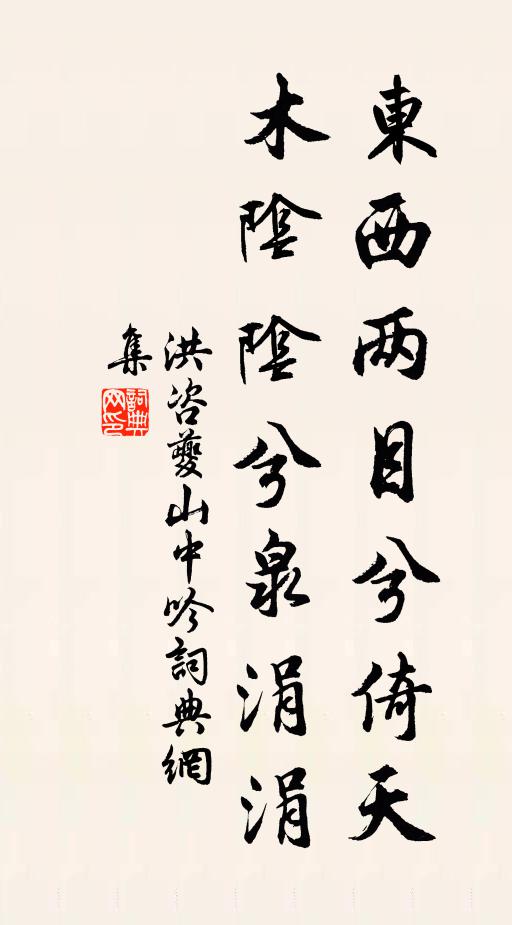 東西两目兮倚天
木陰陰兮泉涓涓
洪咨夔山中吟詞典網
集
詞典
网印